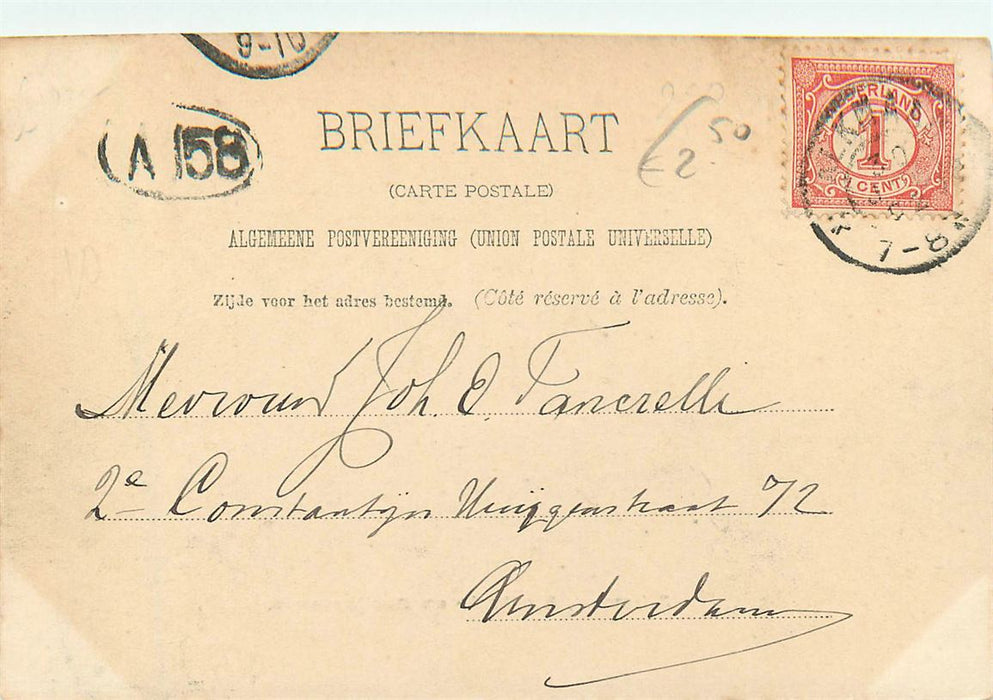 9-10
A 158
BRIEFKAART
(CARTE POSTALE)
€ 2.50
NEDERLAND
1
CENT
7-8
ALGEMEENE POSTVEREENIGING (UNION POSTALE UNIVERSELLE)
Zijde voor het adres bestemd. (Côté réservé à l'adresse).
Mevrouw Joh. E. Tancrelli
2e Constantijn Huijgenstraat 72
Amsterdam